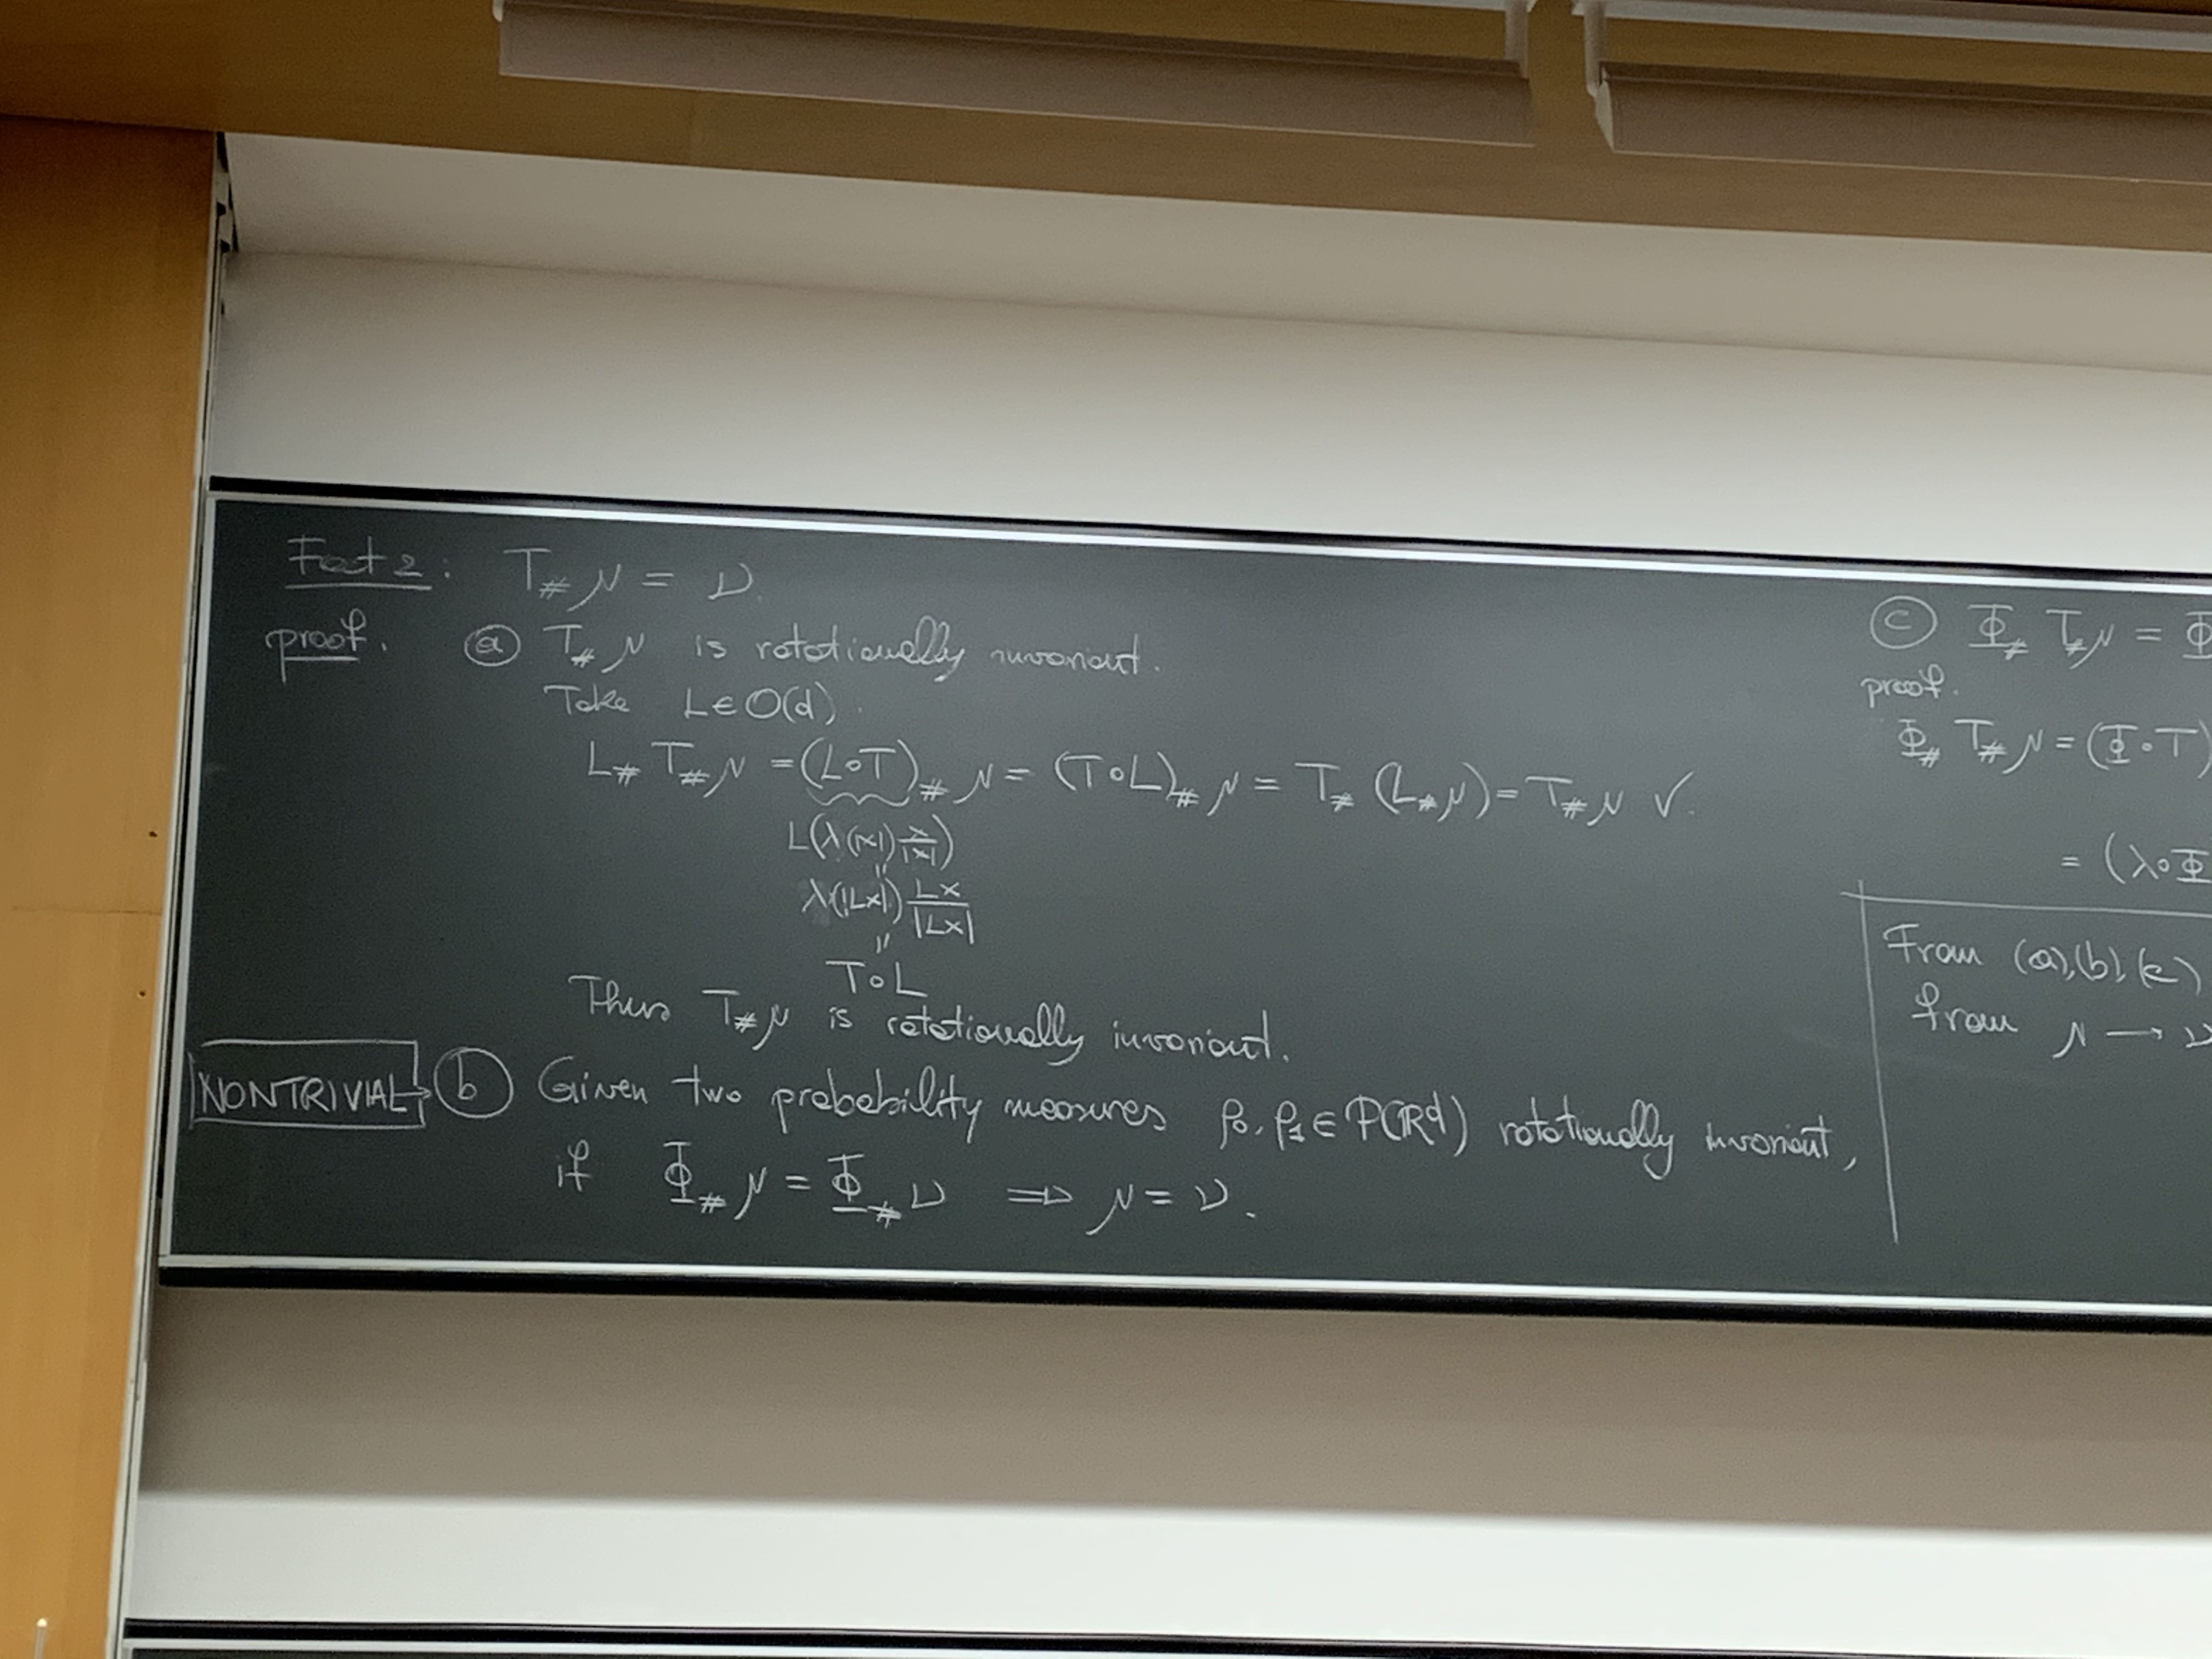 Fact 2: T_# μ = ν.
proof. ⓐ T_# μ is rotationally invariant.
Take L∈O(d).
L_# T_# μ = (L∘T)_# μ = (T∘L)_# μ = T_# (L_# μ) = T_# μ ✓.
L(λ(|x|) x/|x|)
=
λ(|Lx|) Lx/|Lx|
=
T∘L
Thus T_# μ is rotationally invariant.
NONTRIVIAL → ⓑ Given two probability measures ρ₀, ρ₁ ∈ P(ℝᵈ) rotationally invariant,
if Φ_# μ = Φ_# ν ⇒ μ = ν.
ⓒ Φ_# T_# μ = Φ
proof.
Φ_# T_# μ = (Φ∘T)
= (λ∘Φ
From (a), (b), (c)
from μ → ν